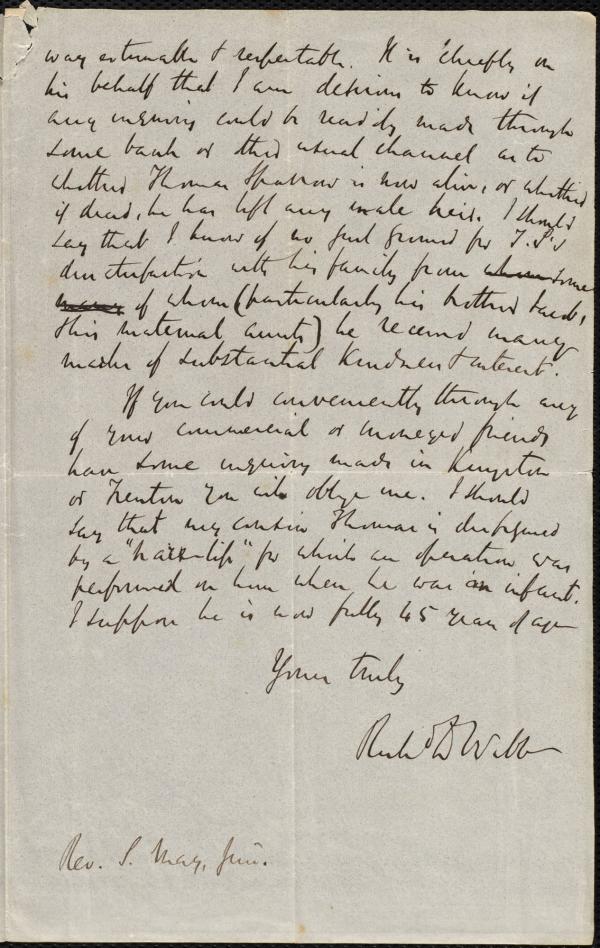 way estimable & respectable. It is chiefly on
his behalf that I am desirous to know if
any inquiry could be readily made through
some bank or other usual channel as to
whether Thomas Sparrow is now alive, or whether
if dead, he has left any male heir. I should
say that I know of no just ground for T. S's
dissatisfaction with his family from whom some
many of whom (particularly his brother Jacob,
& his maternal aunts) he received many
marks of substantial kindness & interest.
If you could conveniently through any
of your commercial or moneyed friends
have some inquiry made in Kingston
or Trenton you will oblige me. I should
say that my cousin Thomas is disfigured
by a "hare-lip" for which an operation was
performed on him when he was an infant.
I suppose he is now fully 45 years of age
Yours truly
Richd D Webb
Rev. S. May, Junr.